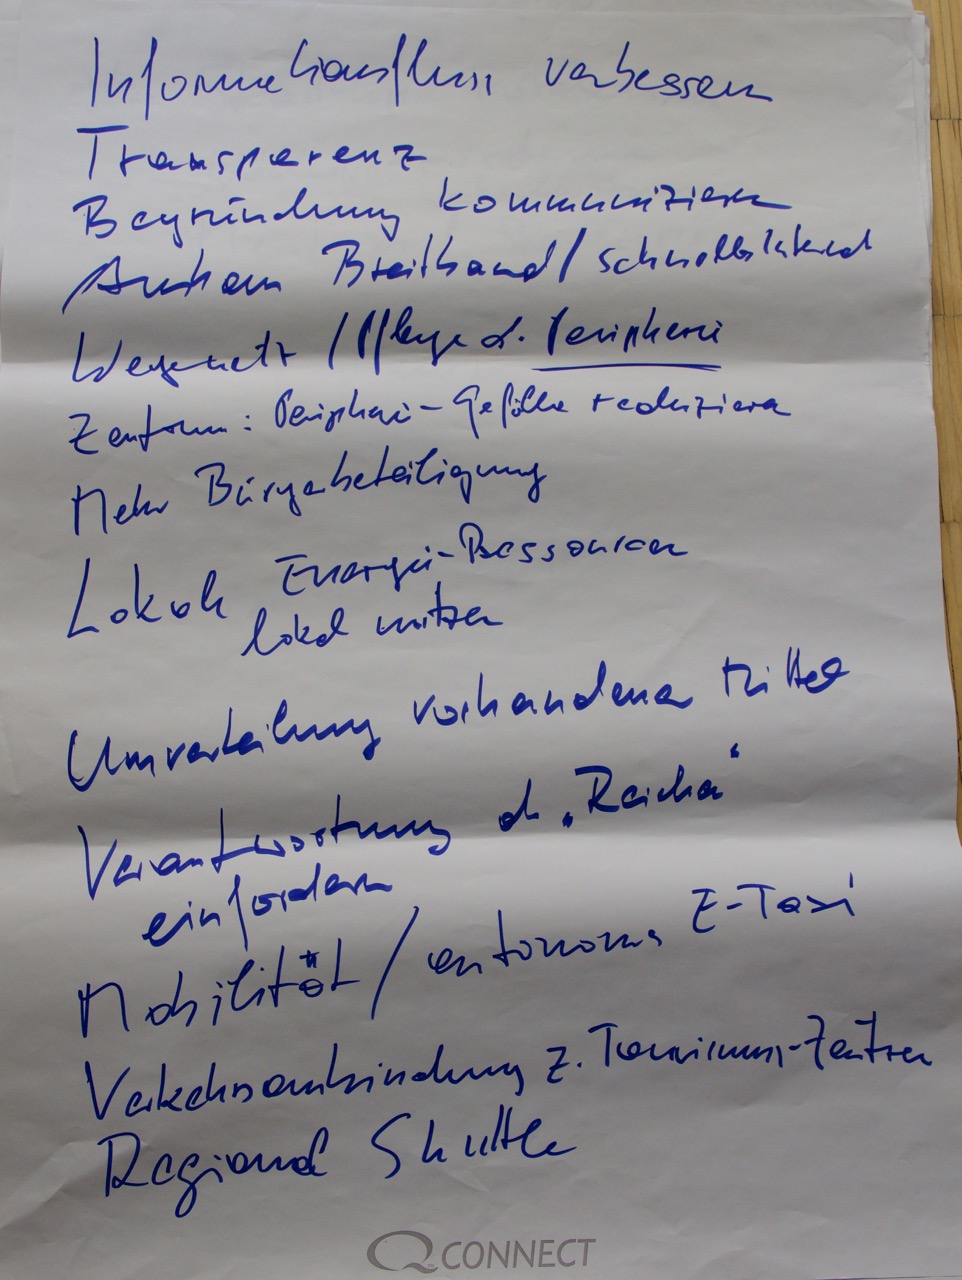 Informationsfluss verbessern
Transparenz
Begründung kommunizieren
Ausbau Breitband / schnelles Internet
Wegenetz / Pflege d. Peripherie
Zentrum: Peripherie-Gefälle reduzieren
Mehr Bürgerbeteiligung
Lokale Energie-Ressourcen
lokal nutzen
Umverteilung vorhandener Mittel
Verantwortung der „Reichen"
einfordern
Mobilität / autonomes E-Taxi
Verkehrsanbindung z. Tourismus-Zentren
Regional Shuttle
Q CONNECT